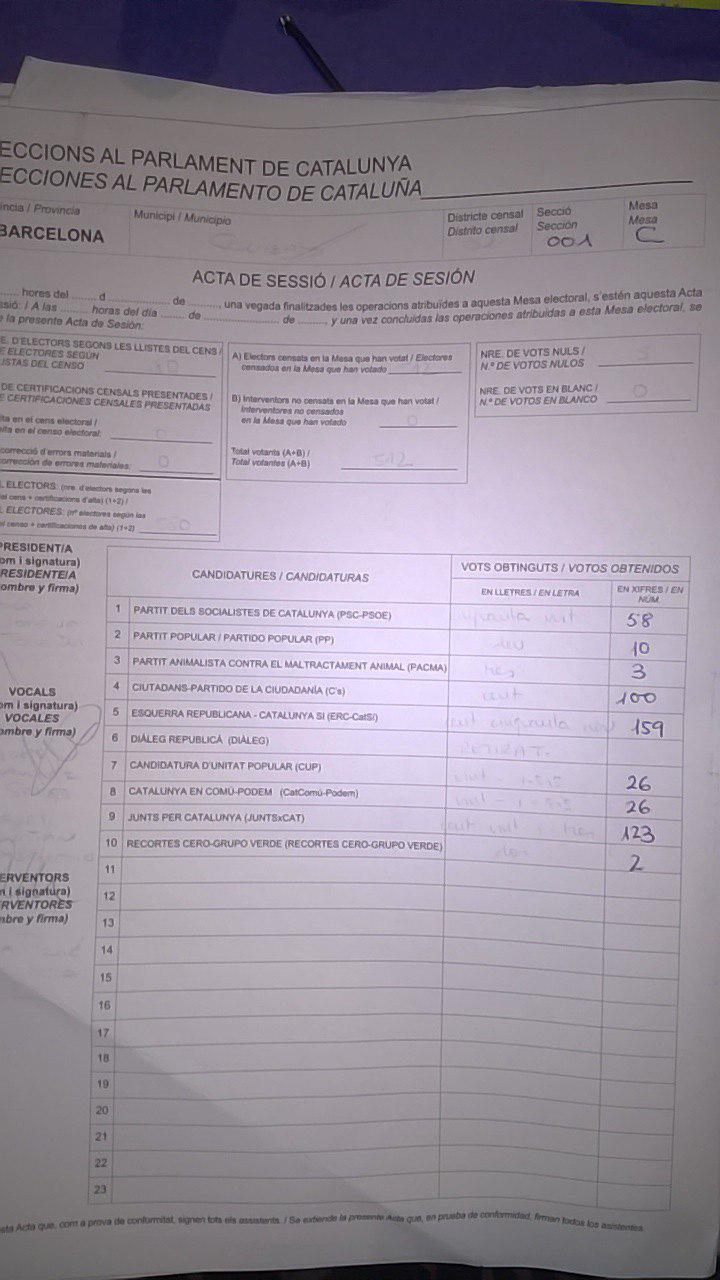 ECCIONS AL PARLAMENT DE CATALUNYA
ECCIONES AL PARLAMENTO DE CATALUÑA
íncia / Provincia
BARCELONA
Municipi / Municipio
Districte censal
Distrito censal
Secció
Sección
001
Mesa
Mesa
C
ACTA DE SESSIÓ / ACTA DE SESIÓN
hores del ........ d .................... de .........., una vegada finalitzades les operacions atribuïdes a aquesta Mesa electoral, s'estén aquesta Acta
ssió: / A las ......... horas del día ........ de .................... de ........, y una vez concluidas las operaciones atribuidas a esta Mesa electoral, se
la presente Acta de Sesión:
E. D'ELECTORS SEGONS LES LLISTES DEL CENS /
E ELECTORES SEGÚN
ISTAS DEL CENSO
DE CERTIFICACIONS CENSALS PRESENTADES /
E CERTIFICACIONES CENSALES PRESENTADAS
lta en el cens electoral /
lta en el censo electoral:
correcció d'errors materials /
corrección de errores materiales: 0
. ELECTORS: (nre. d'electors segons les
al cens + certificacions d'alta) (1+2) /
. ELECTORES: (nº electores según las
el censo + certificaciones de alta) (1+2)
A) Electors censats en la Mesa que han votat / Electores
censados en la Mesa que han votado
B) Interventors no censats en la Mesa que han votat /
Interventores no censados
en la Mesa que han votado 0
Total votants (A+B) /
Total votantes (A+B) 512
NRE. DE VOTS NULS /
N.º DE VOTOS NULOS
NRE. DE VOTS EN BLANC /
N.º DE VOTOS EN BLANCO 0
PRESIDENT/A
om i signatura)
RESIDENTE/A
ombre y firma)
VOCALS
om i signatura)
VOCALES
ombre y firma)
ERVENTORS
m i signatura)
RVENTORES
mbre y firma)
CANDIDATURES / CANDIDATURAS
VOTS OBTINGUTS / VOTOS OBTENIDOS
EN LLETRES / EN LETRA
EN XIFRES / EN
NÚM.
1 PARTIT DELS SOCIALISTES DE CATALUNYA (PSC-PSOE) 58
2 PARTIT POPULAR / PARTIDO POPULAR (PP) deu 10
3 PARTIT ANIMALISTA CONTRA EL MALTRACTAMENT ANIMAL (PACMA) tres 3
4 CIUTADANS-PARTIDO DE LA CIUDADANÍA (C's) cent 100
5 ESQUERRA REPUBLICANA - CATALUNYA SÍ (ERC-CatSí) cent cinquanta nou 159
6 DIÀLEG REPUBLICÀ (DIÀLEG) RETIRAT
7 CANDIDATURA D'UNITAT POPULAR (CUP) vint - i - sis 26
8 CATALUNYA EN COMÚ-PODEM (CatComú-Podem) vint - i - sis 26
9 JUNTS PER CATALUNYA (JUNTSxCAT) 123
10 RECORTES CERO-GRUPO VERDE (RECORTES CERO-GRUPO VERDE) dos 2
11
12
13
14
15
16
17
18
19
20
21
22
23
sta Acta que, com a prova de conformitat, signen tots els assistents. / Se extiende la presente Acta que, en prueba de conformidad, firman todos los asistentes.